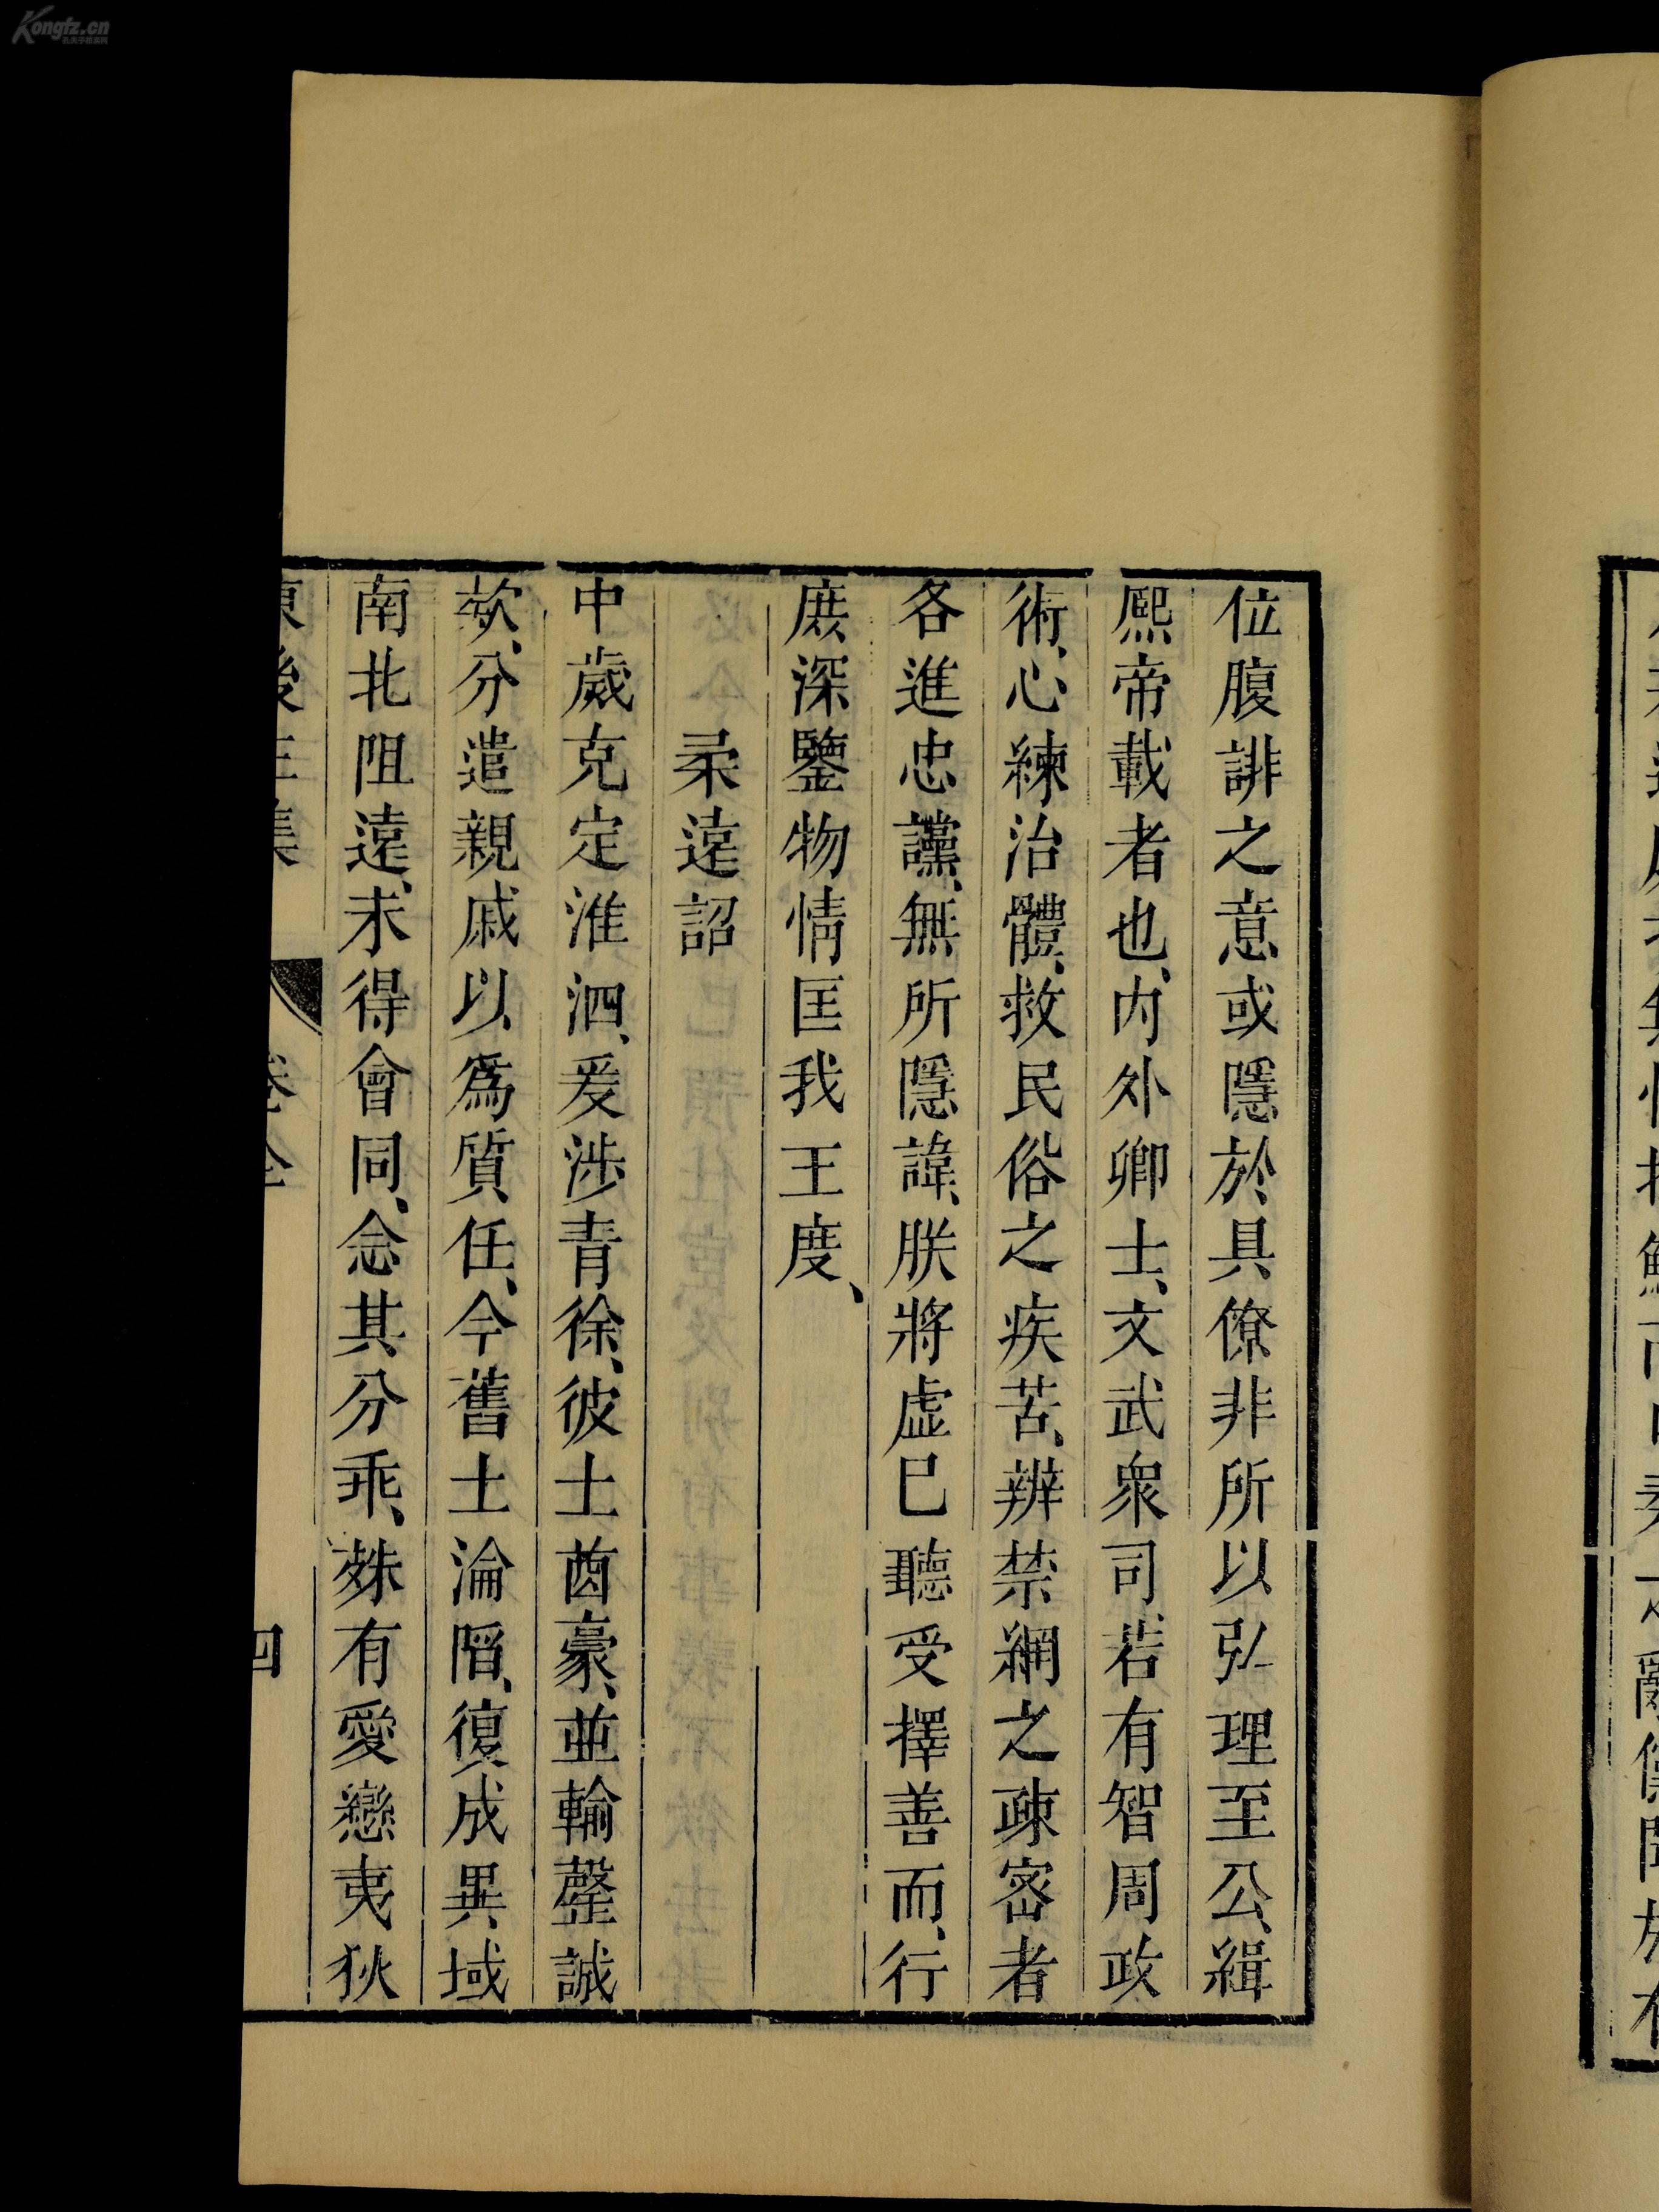 位腹誹之意或隱於具僚非所以弘理至公、緝
熈帝載者也、内外卿士、文武衆司、若有智周政
術、心練治體、救民俗之疾苦、辨禁網之疎密者
各進忠讜、無所隱諱、朕將虛巳聽受擇善而、行
庶深鑒物情匡我王度、
柔遠詔
中歲克定淮泗、爰涉青徐、彼土酋豪、並輸罄誠
欵、分遣親戚以爲質任、今舊土淪陷、復成異域
南北阻遠、未得會同、念其分乖、殊有愛戀夷狄
陳後主集
卷全
四
Kongfz.cn